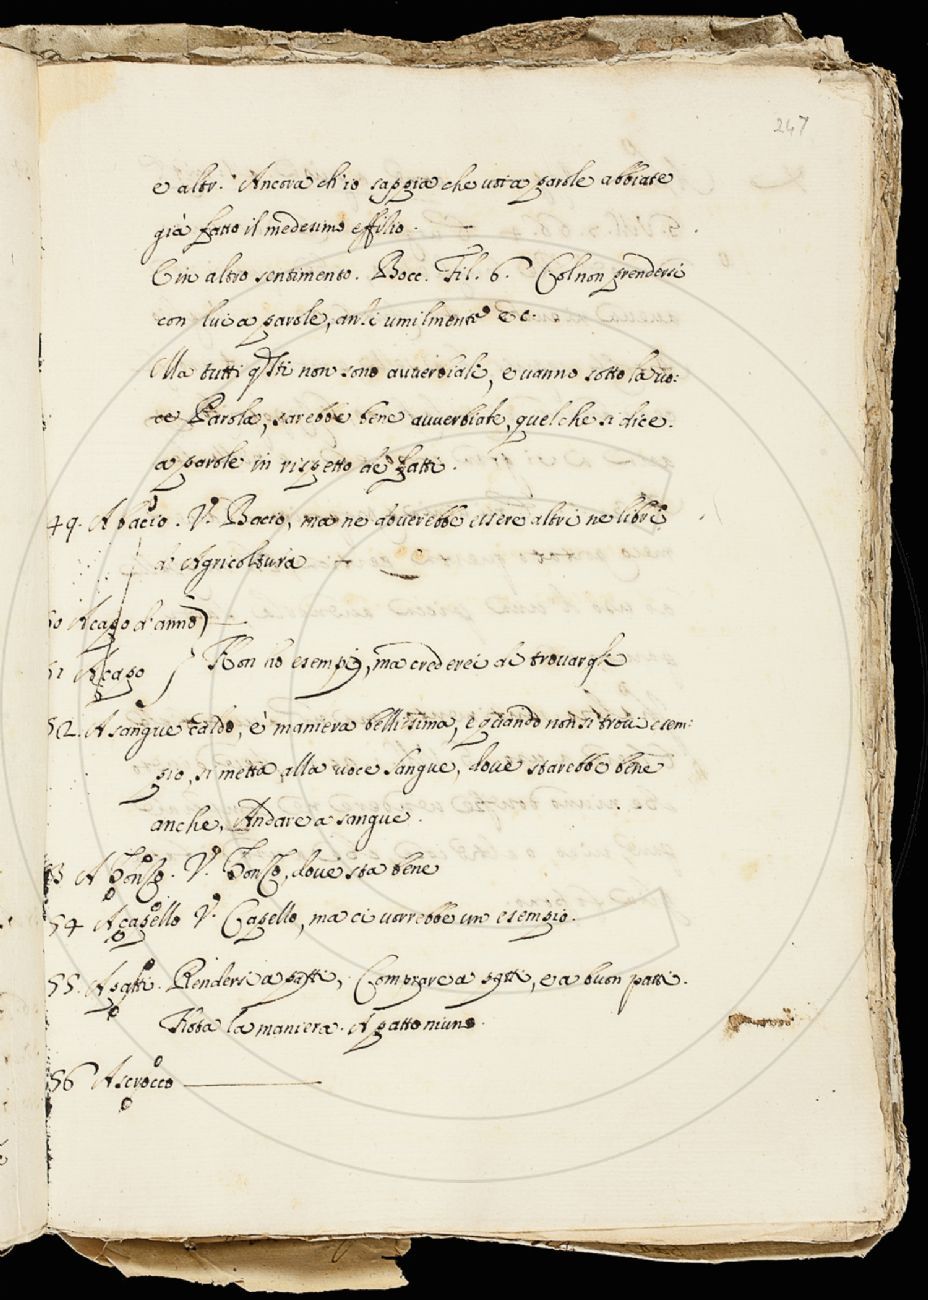 247
e altr. Ancora ch'io sappia che voi a parole abbiate
già fatto il medesimo effilio.
E in altro sentimento. Bocc. Fil. 6. Col non prendersi
con lui a parole, anzi umilmente ec.
Ma tutti q.sti non sono avverbiali, e vanno sotto la vo:
ce Parola, sarebbe bene avverbiale, quel che si dice.
a parole in rispetto de fatti.
49. A bacìo. V. Bacìo, ma ne doverebbe essere altri ne libri
d'Agricoltura
50 A capo d'anno
51 A capo } Non ho esempi, ma crederei di trovar
52. A sangue caldo, è maniera bellissima, e quando non si trovi esem:
pio, si metta alla voce Sangue, dove starebbe bene
anche, Andare a sangue.
53 A Zonzo. V. Zonzo, dove sta bene
54 A capello V. Capello, ma ci vorrebbe un esempio.
55. A patti. Rendersi a patti, Comprare a patti, e a buon patti.
Nota la maniera. A patto niuno.
56 A scrocco